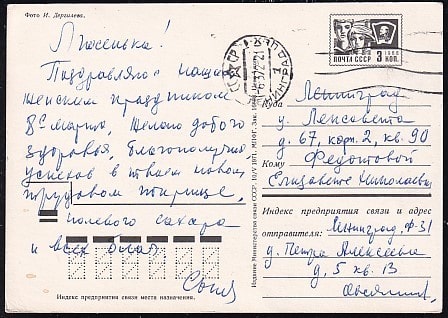 Фото И. Дергилева.
Люсенька!
Поздравляю с нашим
женским праздником
8е марта, желаю доброго
здоровья, благополучия
успехов в твоем новом
трудовом
полевого сахара
и всех благ.
Соня
Индекс предприятия связи места назначения.
Издание Министерства связи СССР. 10/V 1971.
ПОЧТА СССР
1966
3 КОП
ЛЕНИНГРАД
Куда
Ленинград
у. Ленсовета
д. 67, корп. 2, кв. 90
Кому
Федотовой
Елизавете Николаевне
Индекс предприятия связи и адрес
отправителя:
Ленинград, Ф-31
у. Петра Алексеева
д. 5 кв. 13